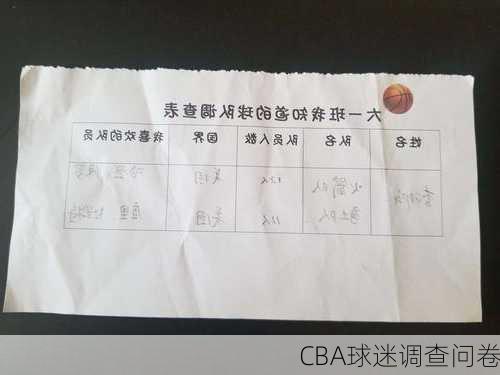 六一班我知道的球队调查表
姓名 队名 队员人数 国界 我喜欢的队员
火箭队 12人 美国
勇士队 11人 美国
CBA球迷调查问卷